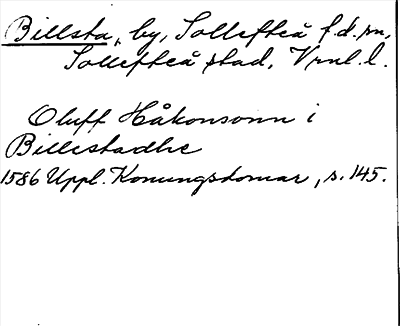 Billsta, by, Sollefteå f.d. sn,
Sollefteå stad, Vnl. l.
Oluff Håkonsonn i
Billestadhe
1586 Uppl. Konungsdomar, s. 145.